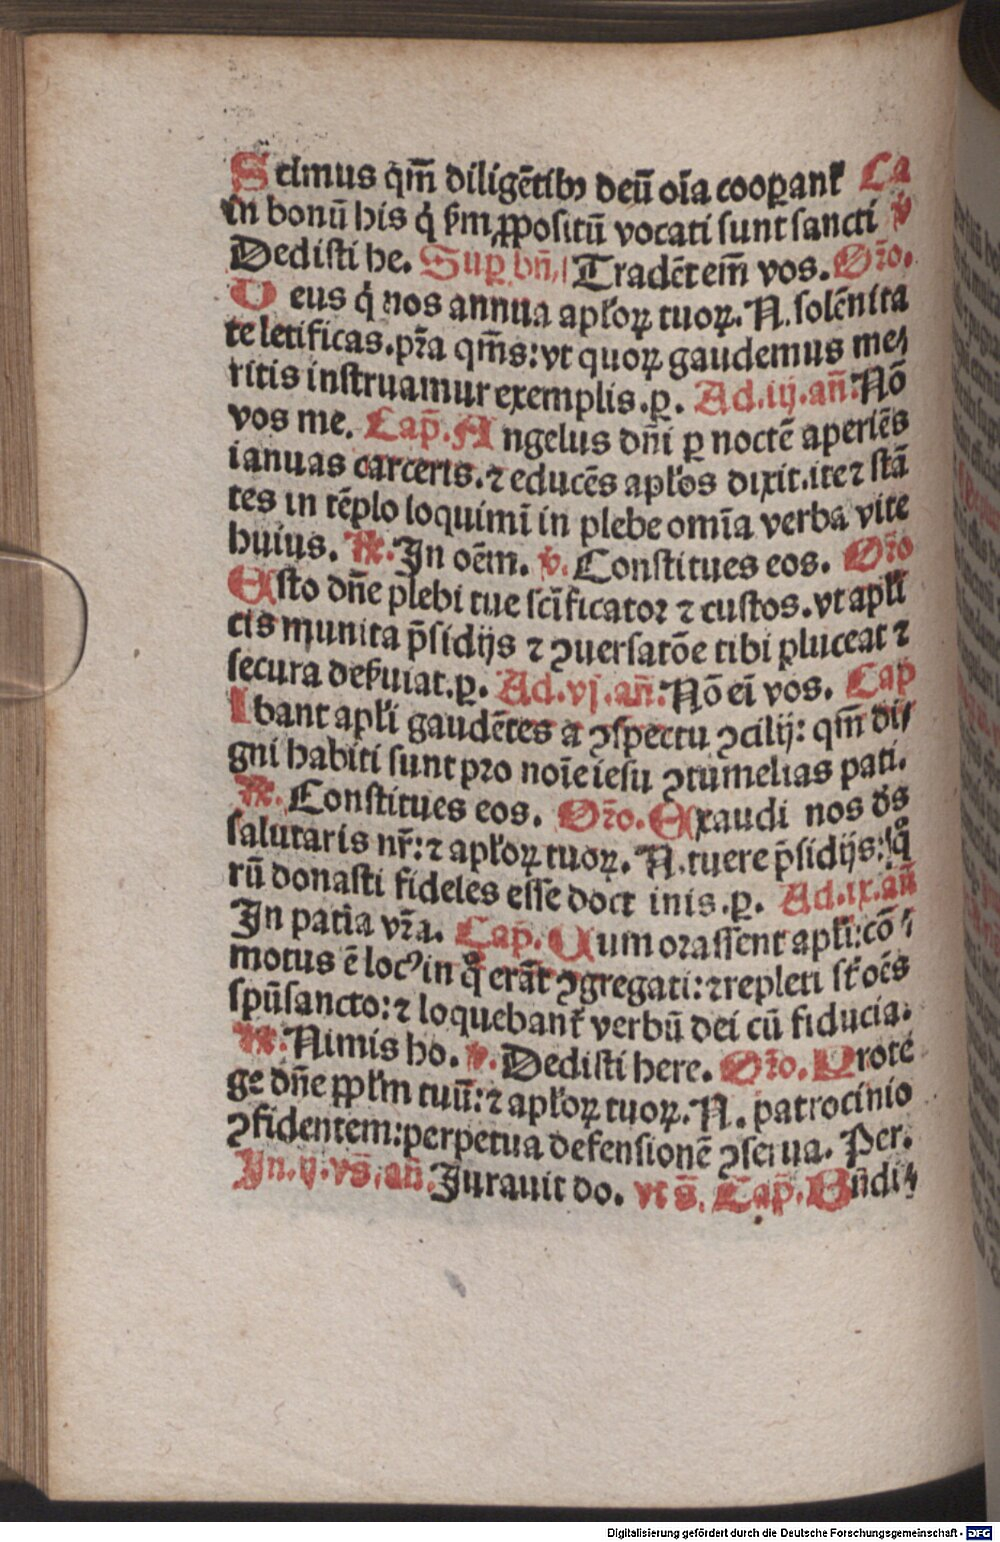 Scimus qm̄ diligētibꝰ deū oīa cooꝑant᷑ Ca
in bonū his q̇ ẜm ꝓpositū vocati sunt sancti ꝟ
Dedisti he. Suꝑ bn̄. Tradēt em̄ vos. Or̄o.
Deus q̇ nos annua apłoꝝ tuoꝝ. N. solēnita
te letificas. pr̄a qm̄s: vt quoꝝ gaudemus me⸗
ritis instruamur exemplis. ꝑ. Ad. iij. an̄. Nō
vos me. Cap̄. Angelus dn̄i ꝑ noctē aperiēs
ianuas carceris. ⁊ educēs apłos dixit. ite ⁊ stā
tes in tēplo loquimī in plebe omīa verba vite
huius. ℟. In oēm. ꝟ. Constitues eos. Or̄o
Esto dn̄e plebi tue scīficator ⁊ custos. vt apłi
cis munita p̄sidijs ⁊ ꝯuersatōe tibi placeat ⁊
secura deẜuiat. ꝑ. Ad. vj. an̄. Nō eī vos. Cap
Ibant apłi gaudētes a ꝯspectu ꝯcilij: qm̄ di⸗
gni habiti sunt pro noīe iesu ꝯtumelias pati.
℟. Constitues eos. Or̄o. Exaudi nos ds̄
salutaris nr̄: ⁊ apłoꝝ tuoꝝ. N. tuere p̄sidijs: qͦ
rū donasti fideles esse doct inis. ꝑ. Ad. ix. an̄
In patia vr̄a. Cap̄. Cum orassent apłi: cō⸗
motus ē locꝰ in qͦ erāt ꝯgregati: ⁊ repleti st̄ oēs
spū sancto: ⁊ loquebant᷑ verbū dei cū fiducia.
℟. Nimis ho. ꝟ. Dedisti here. Or̄o. Prote
ge dn̄e ppłm tuū: ⁊ apłoꝝ tuoꝝ. N. patrocinio
ꝯfidentem: perpetua defensionē ꝯserua. Per.
In. ij. vs̄. an̄. Jurauit do. vt s̄. Cap̄. Bn̄di⸗
Digitalisierung gefördert durch die Deutsche Forschungsgemeinschaft - DFG